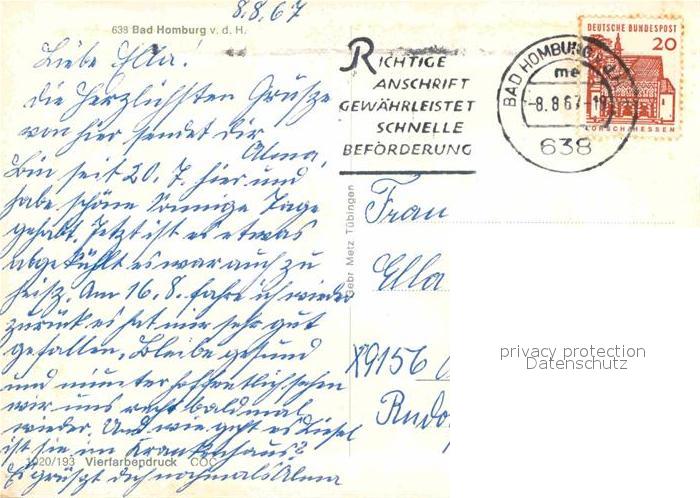 8.8.67
638 Bad Homburg v. d. H.
Liebe Ella!
die herzlichsten Grüsze
von hier sendet dir
Alma.
Bin seit 20. 7. hier und
habe schöne sonnige Tage
gehabt. Jetzt ist es etwas
abgekühlt es war auch zu
heisz. Am 16. 8. fahre ich wieder
zurück es hat mir sehr gut
gefallen. Bleibe gesund
und munter hoffentlich sehen
wir uns recht bald mal
wieder. Und wie geht es Liesel
ist sie im Krankenhaus?
Es grüszt dich nochmals Alma
1020/193 Vierfarbendruck COC
Gebr. Metz Tübingen
RICHTIGE
ANSCHRIFT
GEWÄHRLEISTET
SCHNELLE
BEFÖRDERUNG
BAD HOMBURG
me
-8.8.67-
638
DEUTSCHE BUNDESPOST
20
LORSCH/HESSEN
Frau
Ella
X9156
Rudo
privacy protection
Datenschutz